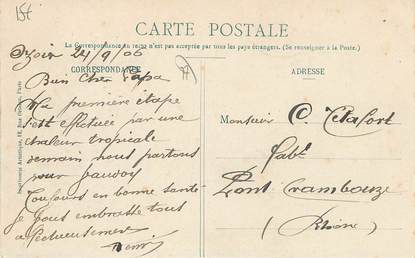 15f
CARTE POSTALE
La Correspondance au recto n'est pas acceptée par tous les pays étrangers. (Se renseigner à la Poste.)
CORRESPONDANCE
ADRESSE
24/9/06
Bien Cher Papa
Ma première étape
s'est effectuée par une
chaleur tropicale
demain nous partons
pour
Toujours en bonne santé
Je vous embrasse tous
affectueusement
Henri
Monsieur C.
Fabt
Pont Trambouze
(Rhône)